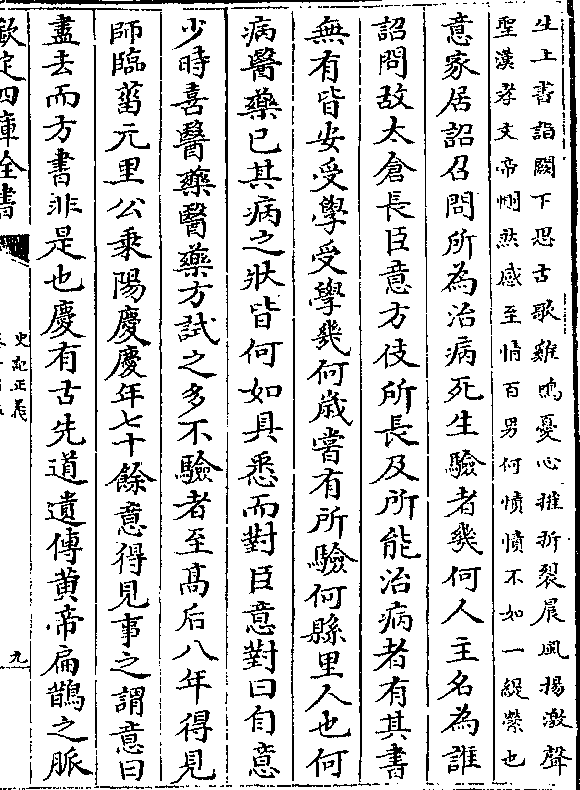 生上書詣闕下思古歌雞鳴憂心摧折裂晨風揚激聲
聖漢孝文帝惻然感至情百男何憒憒不如一緹縈也
意家居詔召問所為治病死生驗者㡬何人主名為誰
詔問故太倉長臣意方伎所長及所能治病者有其書
無有皆安受學受學㡬何歲嘗有所驗何縣里人也何
病醫藥已其病之狀皆何如具悉而對臣意對曰自意
少時喜醫藥醫藥方試之多不驗者至髙后八年得見
師臨菑元里公乘陽慶慶年七十餘意得見事之謂意曰
盡去而方書非是也慶有古先道遺傳黄帝扁鵲之脈
欽定四庫全書
史記正義
九